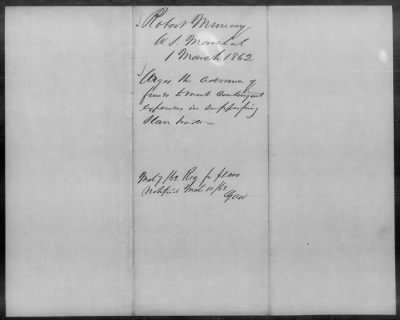 Robert Murray
U.S. Marshal
1 March 1862
Urges the advance of
funds to meet contingent
expenses in suppressing
Slave trade—
Mch 7/62 Req for $1000
Notified Mch 11/62